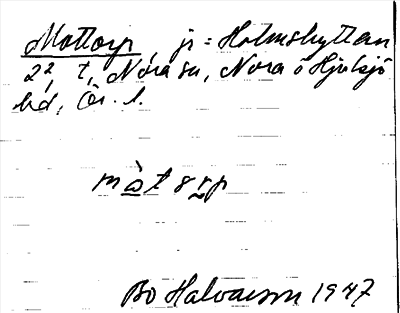 Mottorp, jr = Holmshyttan
2², t, Nora sn, Nora o Hjulsjö
bd, Ör. l.
måt 8 rp
Bo Halvarson 1947